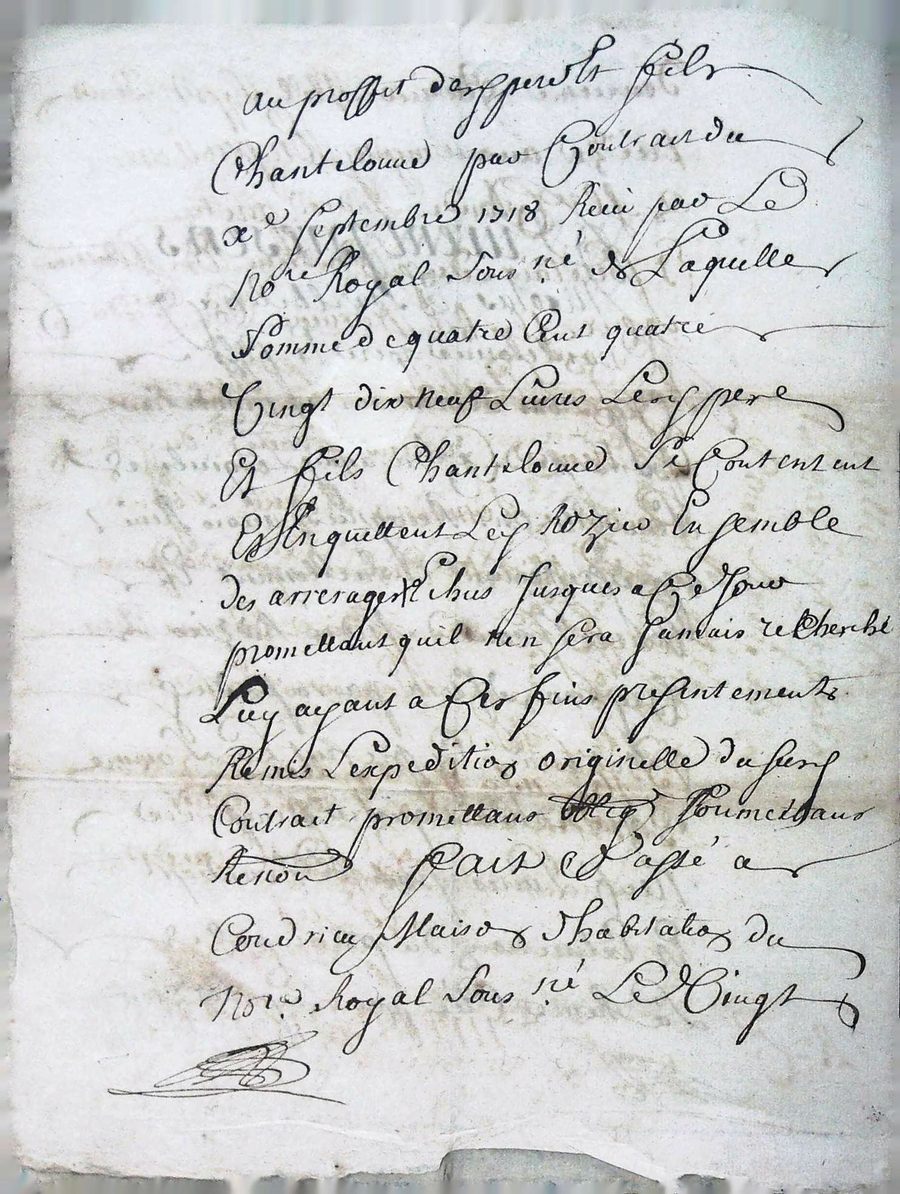 au proffit desd pere et fils
Chantelouue par Contract du
xe Septembre 1718 Receu par Le
nore Royal sousné de Laquelle
somme de quatre Cent quatre
Vingt dix neuf Liures Lesd pere
Et fils Chantelouue se Contentent
Et Enquittent Led Ensemble
des arrerages Echus Jusques a Ce Jour
promettant quil nen sera Jamais recherché
Luy ayant a Ces fins presentement
Remis L'expedition originelle dusurd
Contract promettans oblig soumettans
Renon fait Et Passé a
Condrieu Maison d'habitation du
nore Royal sousné Le Vingt